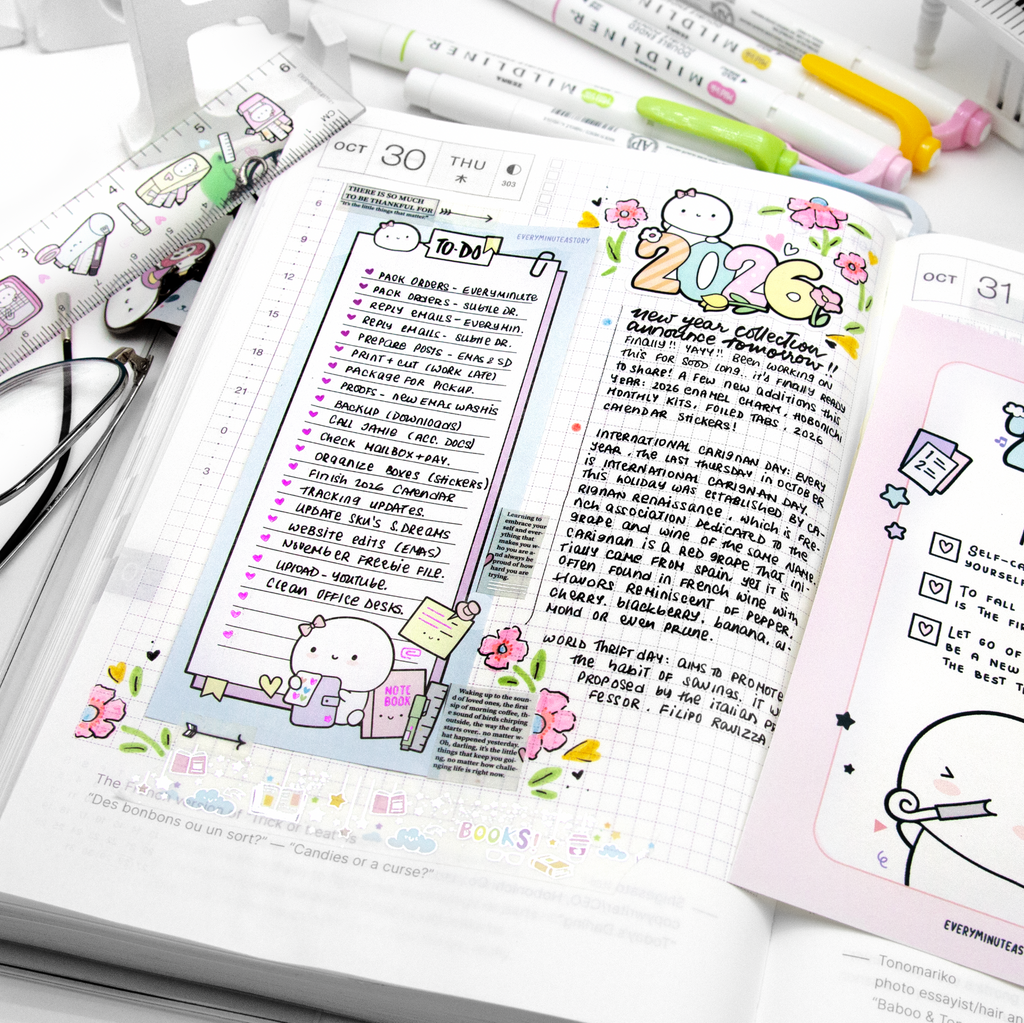 OCT 30 THU
303
THERE IS SO MUCH
TO BE THANKFUL FOR
"It's the little things that matter."
6
9
12
15
18
21
0
3
EVERYMINUTEASTORY
TO-DO
PACK ORDERS - EVERYMINUTE
PACK ORDERS - SUBTLE DR.
REPLY EMAILS - EVERYMIN.
REPLY EMAILS - SUBTLE DR.
PREPARE POSTS - EMAS & SD
PRINT + CUT (WORK LATE)
PACKAGE FOR PICKUP.
PROOFS - NEW EMAS WASHIS
BACKUP (DOWNLOADS)
CALL JAMIE (ACC. DOCS)
CHECK MAILBOX + PAY.
ORGANIZE BOXES (STICKERS)
FINISH 2026 CALENDAR
TRACKING UPDATES.
UPDATE SKU'S S.DREAMS
WEBSITE EDITS (EMAS)
NOVEMBER FREEBIE FILE.
UPLOAD - YOUTUBE.
CLEAN OFFICE DESKS.
NOTE
BOOK
Learning to
embrace your
self and ever-
ything that
makes you w-
ho you are a-
nd always be
proud of how
hard you are
trying.
Waking up to the soun-
d of loved ones, the first
sip of morning coffee, th-
e sound of birds chirping
outside, the way the day
starts over.. no matter w-
hat happened yesterday.
Oh, darling, it's the little
things that keep you goi-
ng, no matter how challe-
nging life is right now.
2026
new year collection
announce tomorrow!!
FINALLY!! YAYY!! BEEN WORKING ON
THIS FOR SOOO LONG. IT'S FINALLY READY
TO SHARE! A FEW NEW ADDITIONS THIS
YEAR: 2026 ENAMEL CHARM, HOBONICHI
MONTHLY KITS, FOILED TABS, 2026
CALENDAR STICKERS!
INTERNATIONAL CARIGNAN DAY: EVERY
YEAR, THE LAST THURSDAY IN OCTOBER
IS INTERNATIONAL CARIGNAN DAY.
THIS HOLIDAY WAS ESTABLISHED BY CA-
RIGNAN RENAISSANCE, WHICH IS FRE-
NCH ASSOCIATION DEDICATED TO THE
GRAPE AND WINE OF THE SAME NAME.
CARIGNAN IS A RED GRAPE THAT INI-
TIALLY CAME FROM SPAIN, YET IT IS
OFTEN FOUND IN FRENCH WINE WITH
FLAVORS REMINISCENT OF PEPPER,
CHERRY, BLACKBERRY, BANANA, AL-
MOND OR EVEN PRUNE.
WORLD THRIFT DAY: AIMS TO PROMOTE
THE HABIT OF SAVINGS. IT W
PROPOSED BY THE ITALIAN P
FESSOR, FILIPO RAVIZZA
BOOKS!
The French version of "Trick or treat" is
"Des bonbons ou un sort?" — "Candies or a curse?"
OCT 31
1
2
SELF-CA
YOURSEL
TO FALL
IS THE FIR
LET GO OF
BE A NEW
THE BEST T
EVERYMINUTEAS
Tonomariko
photo essayist/hair an
"Baboo & To
MILDLINER
ZEBRA
MILDLINER
ZEBRA
MILDLINER
DOUBLE ENDED
MILDLINER
3
4
5
6
CM